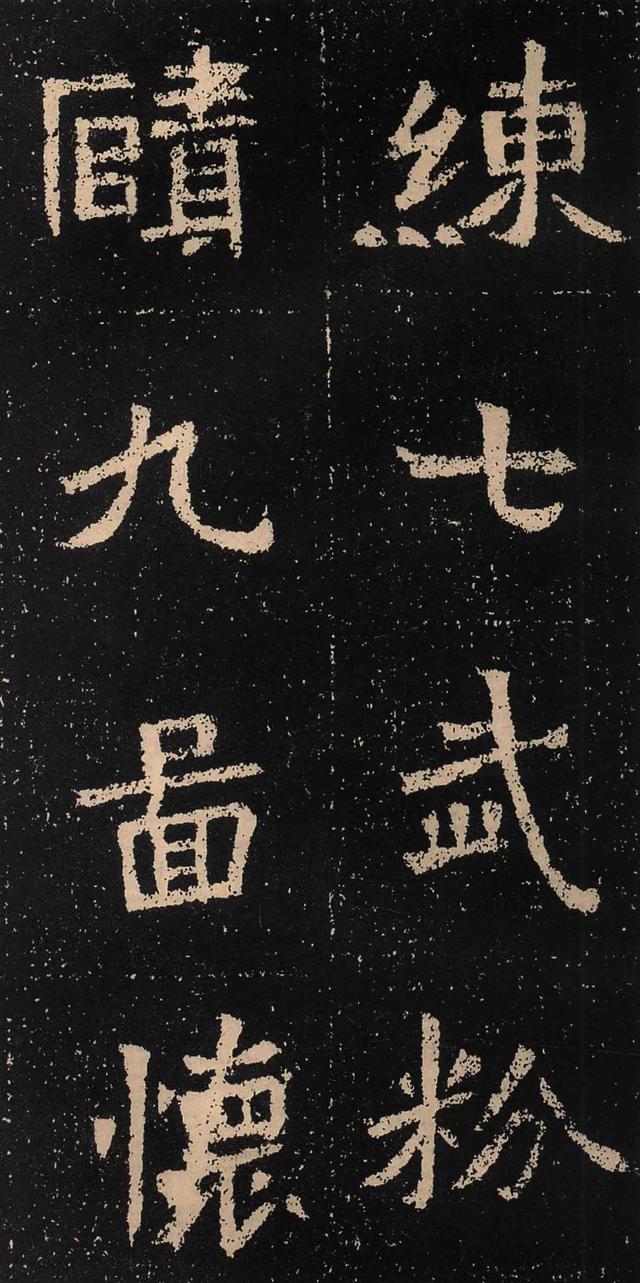 練七武粉
賾九啚懷